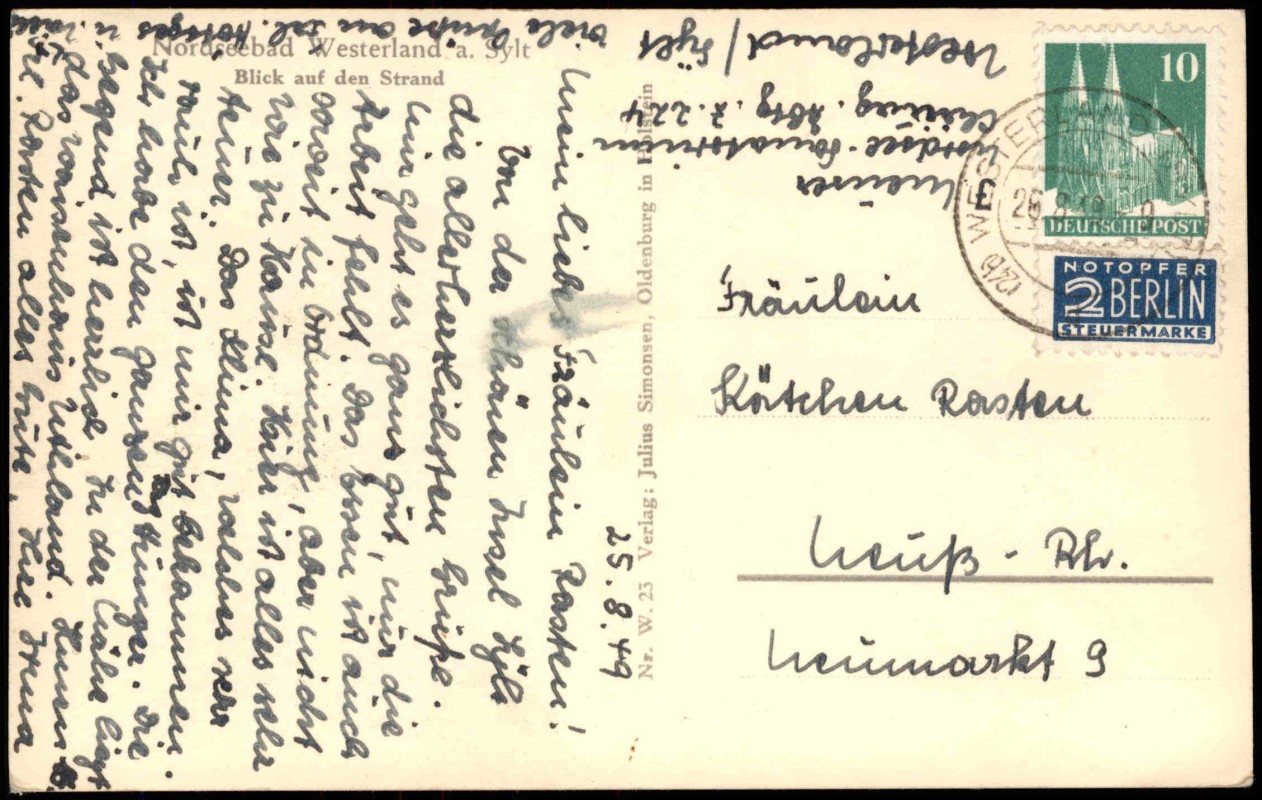 Nordseebad Westerland a. Sylt
Blick auf den Strand
25.8.49
Mein liebes Fräulein Rasten!
Von der schönen Insel Sylt
die allerherzlichsten Grüße.
Mir geht es ganz gut, nur die
Arbeit fehlt. Das Essen ist auch
soweit in Ordnung, aber nicht
wie zu Hause. Hier ist alles sehr
teuer. Das Klima, welches sehr
rauh ist, ist mir gut bekommen.
Ich habe den ganzen Tag Hunger. Die
Gegend ist herrlich. In der Nähe liegt
das Waisenhaus Uthland. Ihnen
Frl. Rasten alles Gute, Ihre Irma
viele Grüße an
Nr. W. 23 Verlag: Julius Simonsen, Oldenburg in Holstein
Meuser
Nordsee-Sanatorium
Abtg. Z. 224
Westerland/Sylt
10
DEUTSCHE POST
NOTOPFER
2 BERLIN
STEUERMARKE
(24b) WESTERLAND
26.8.49
Fräulein
Kätchen Rasten
Neuß - Rh.
Neumarkt 9